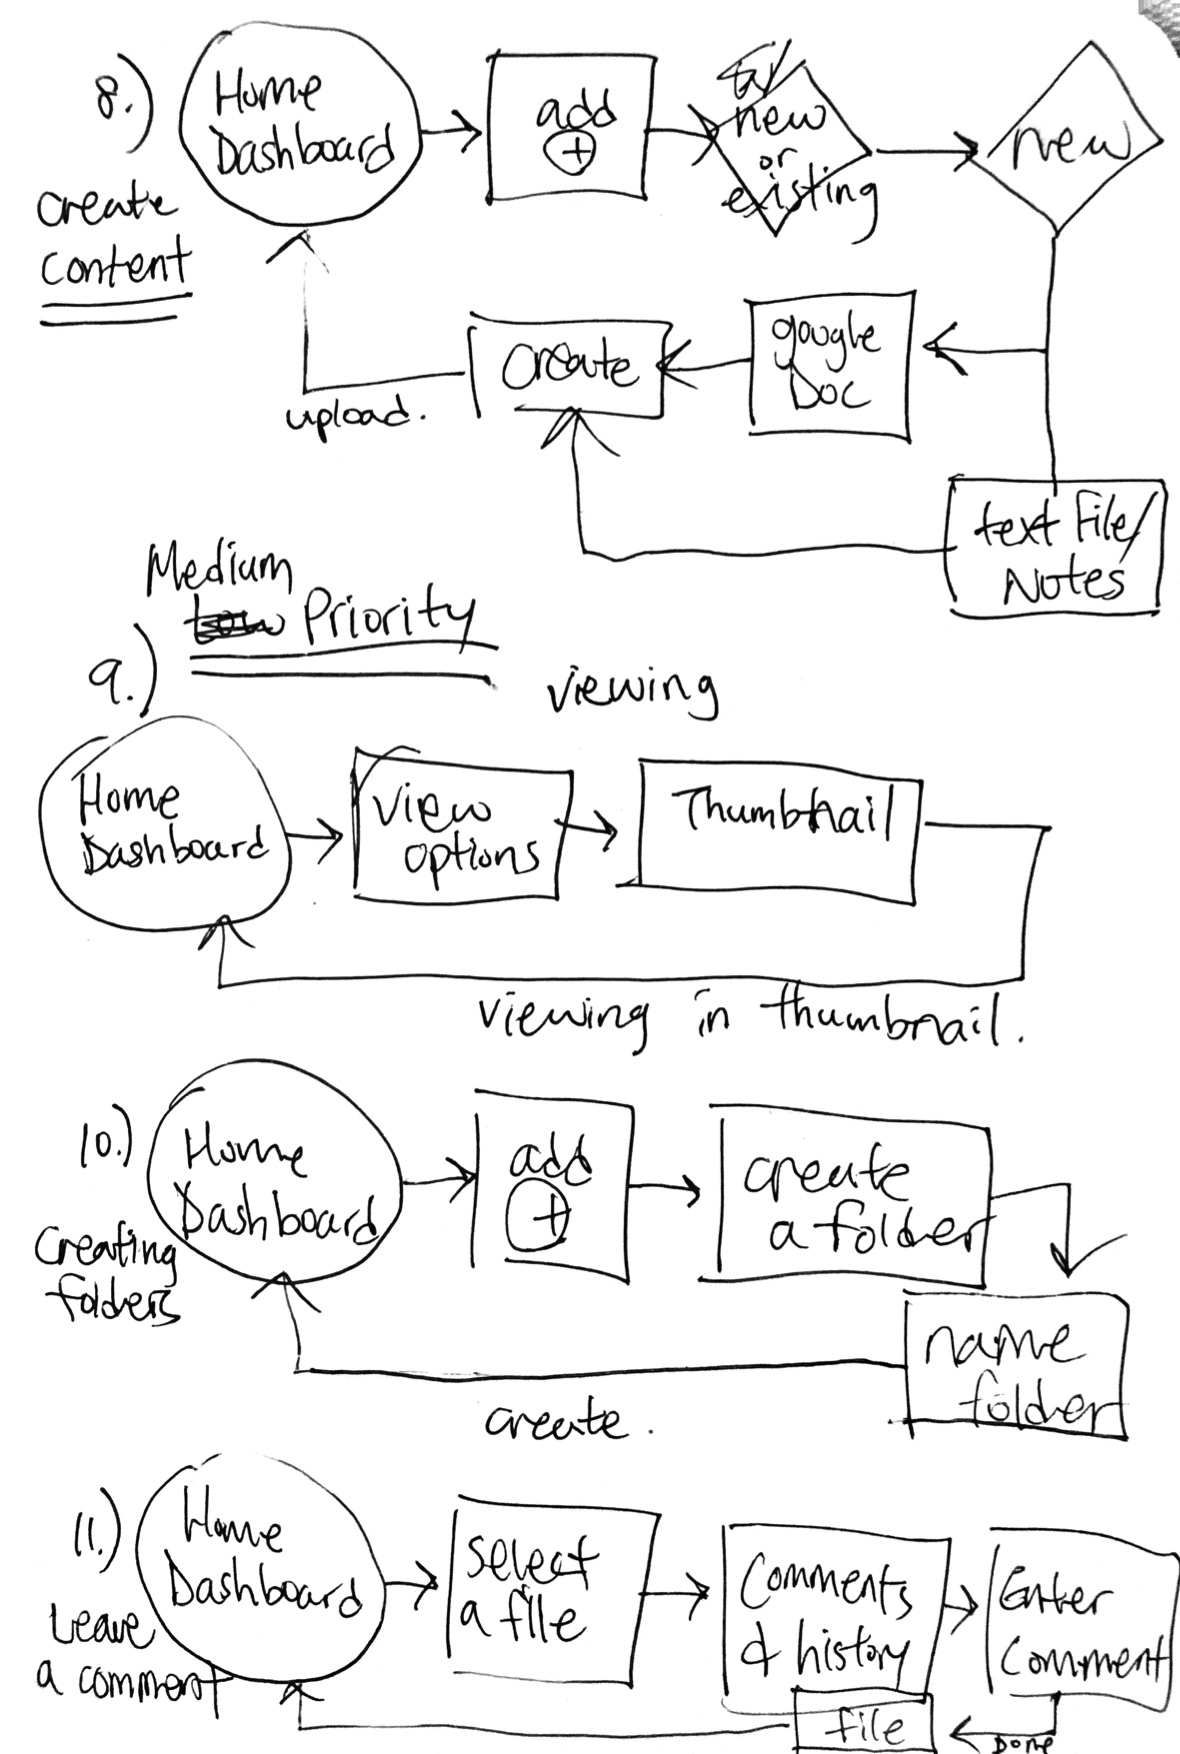 8.)
Create
Content
Home
Dashboard
add
+
new
or
existing
new
google
Doc
Create
upload.
text File/
Notes
Medium
Low Priority
9.)
viewing
Home
Dashboard
View
options
Thumbnail
viewing in thumbnail.
10.)
Creating
folders
Home
Dashboard
add
+
create
a folder
name
folder
create.
11.)
Leave
a comment
Home
Dashboard
select
a file
Comments
& history
Enter
Comment
Done
file